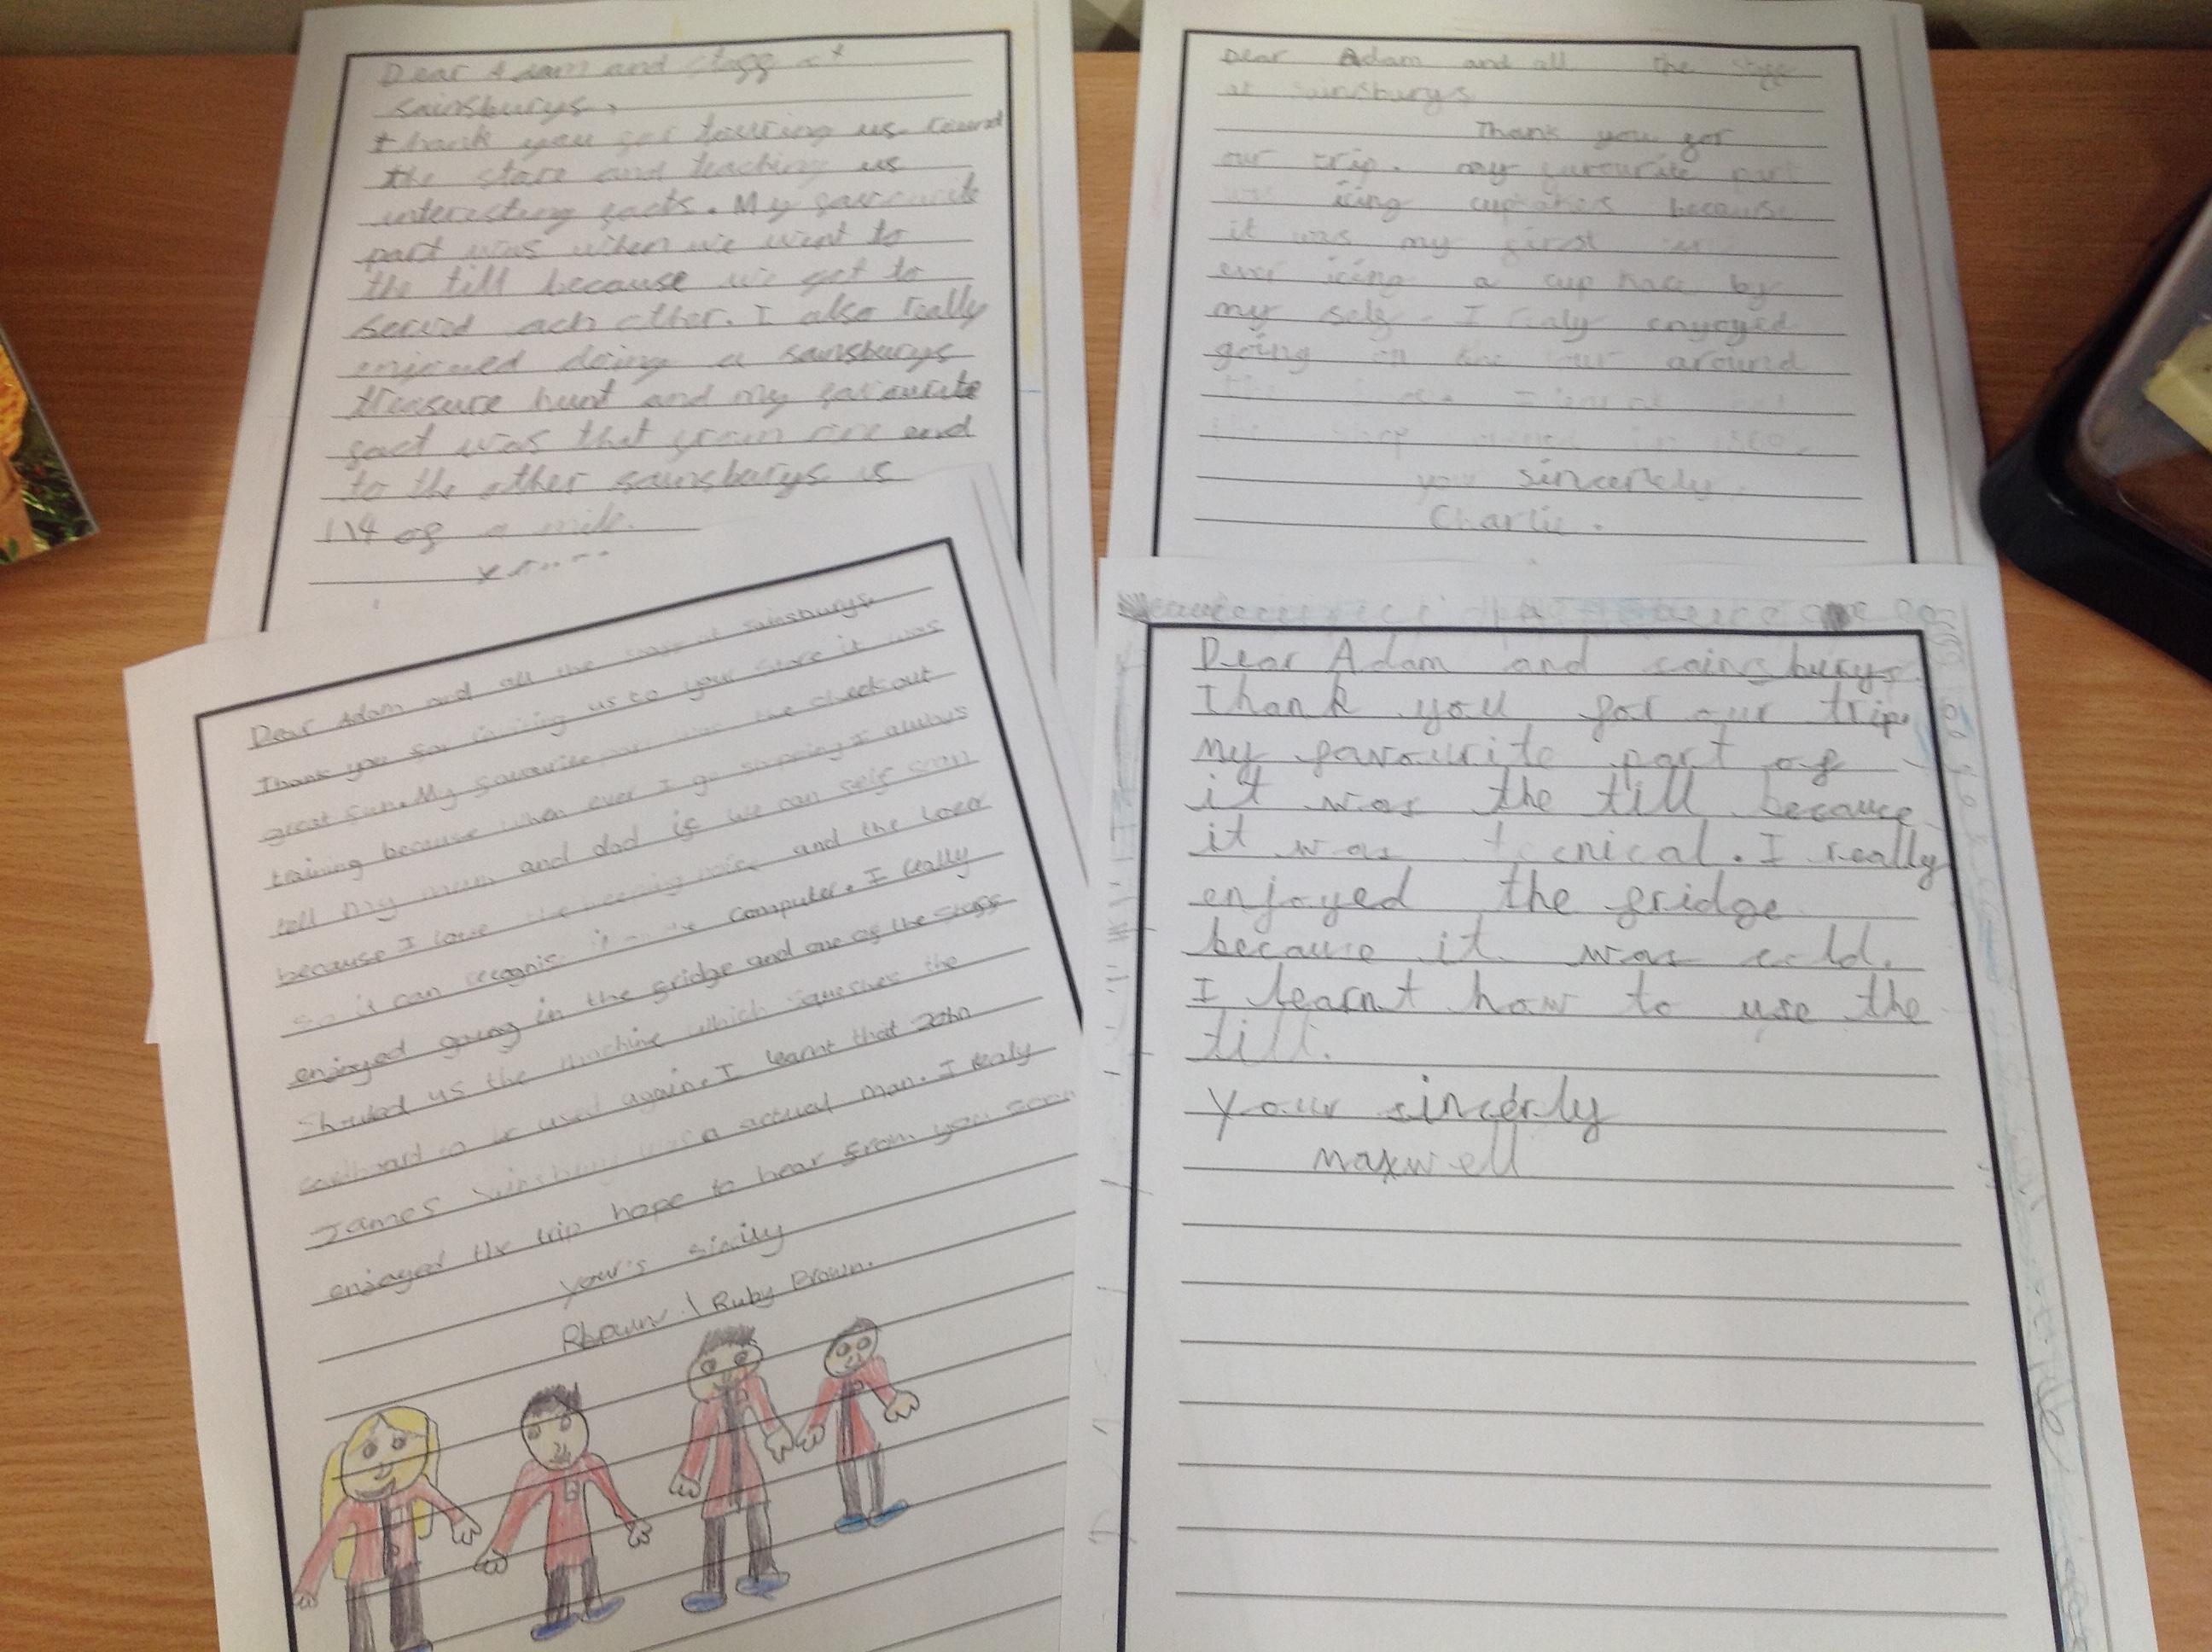 Dear Adam and staff at
sainsburys,
thank you for touring us round
the store and teaching us
interesting facts. My favourite
part was when we went to
the till because we got to
served ach other. I also really
enjoyed doing a sainsburys
treasure hunt and my favourite
fact was that and
to the other sainsburys is
1\4 of a mile.
Dear Adam and all the staff
at sainsburys
Thank you for
our trip. my favourite part
was icing because
it was my first
ever icing a cup by
my self. I realy
going on the tour around
I learnt
the shop
your sincerely
Charlie.
Dear Adam and all the staff at Sainsburys.
Thank you for inviting us to your store it was
great fun. My favourite part was the check out
training because when ever I go shoping I always
tell my mum and dad if we can self scan
because I love the beeping noise and the laser
so it can recognise it computer. I really
enjoyed going in the fridge and one of the staff
showed us the machine which squeshes the
cardboard to be used again. I learnt that John
James Sainsbury was a actual man. I realy
enjoyed the trip hope to hear from you soon
your's
Ruby Brown.
Dear Adam and sainsburys
Thank you for our trip.
my favourite part of
it was the till because
it was tecnical. I really
enjoyed the fridge
because it was cold.
I learnt how to use the
till.
your sincerly
maxwell